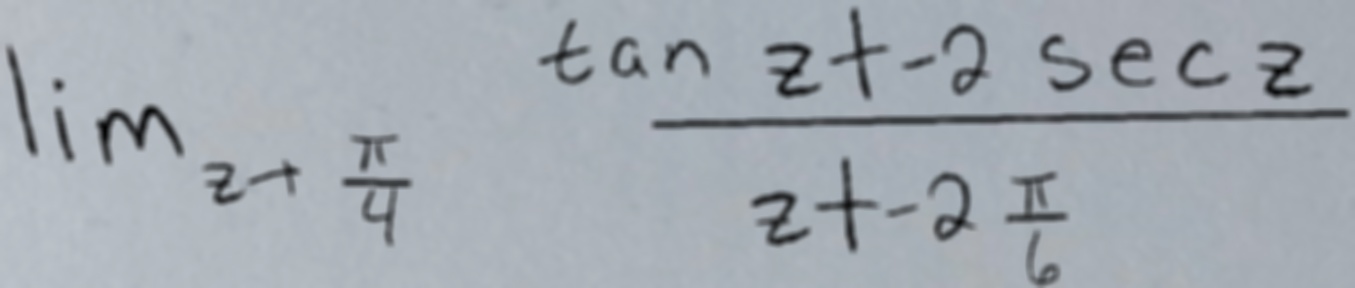 lim z→ π/4 (tan z+-2 sec z)/(z+-2 π/6)